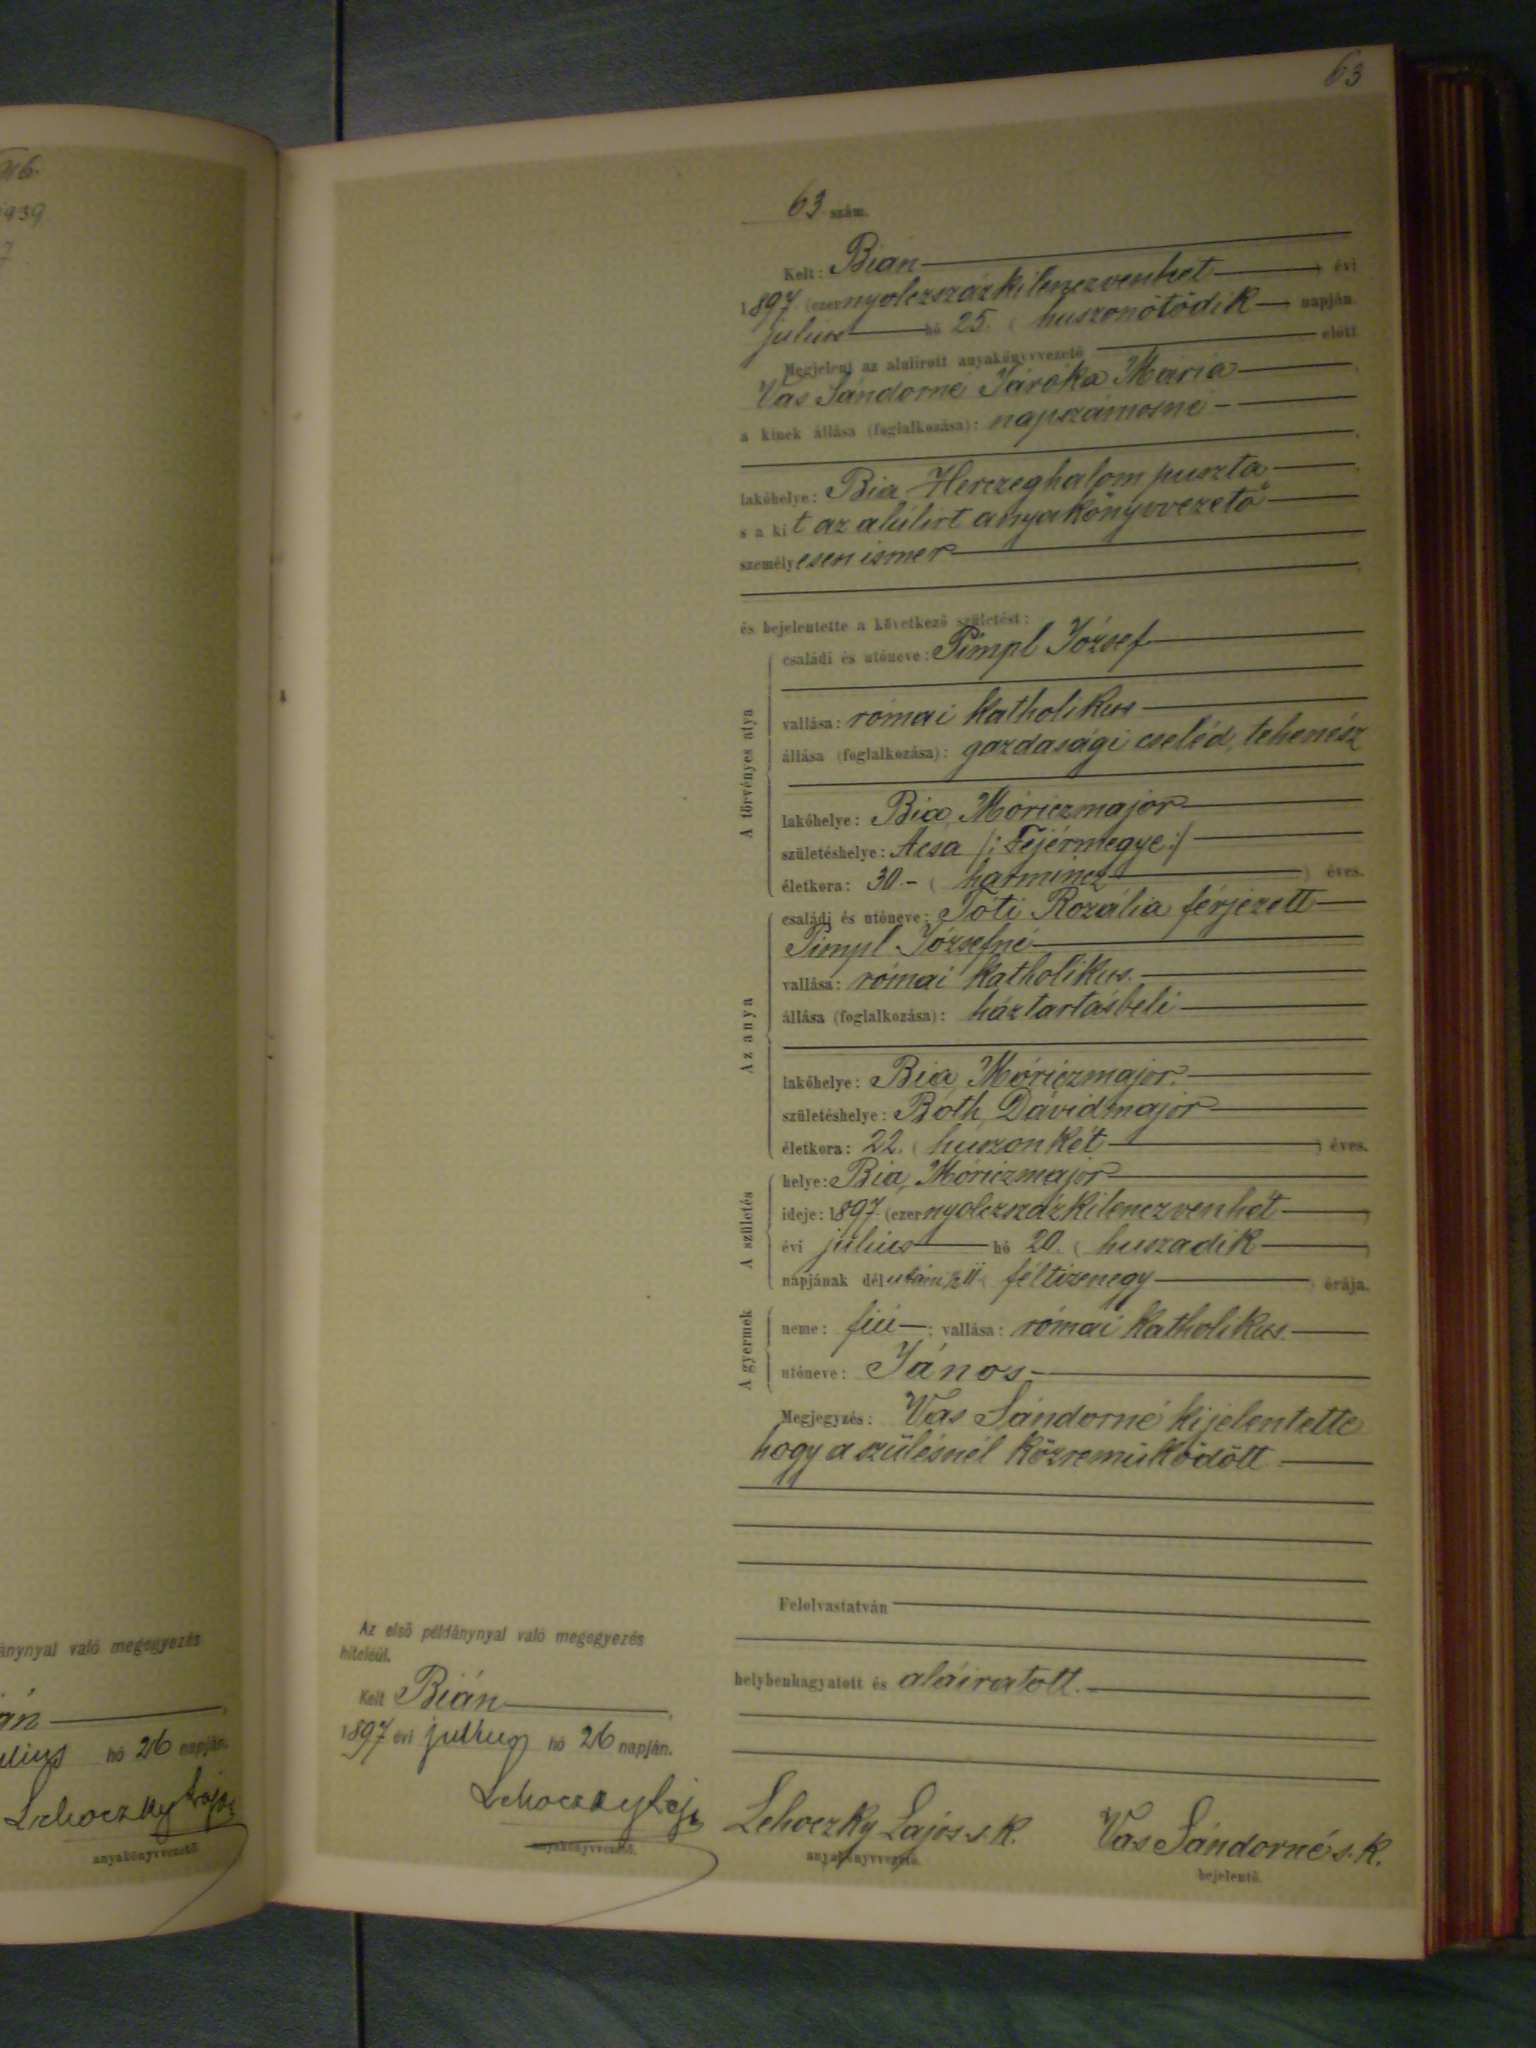 mb.
1939
7
ánynyal való megegyezés
án
július hó 26 napján.
Lehoczky Lajos
anyakönyvvezető.
63
63 szám.
Kelt: Bián
1897 (ezernyolczszázkilenczvenhét) évi
július hó 25. (huszonötödik napján.
Megjelent az alulirott anyakönyvvezető előtt
Vas Sándorné Járóka Mária
a kinek állása (foglalkozása): napszámosné
lakóhelye: Bia Herczeghalom puszta
s a kit az alúlirt anyakönyvvezető
személyesen ismer
és bejelentette a következő születést:
A törvényes atya
családi és utóneve: Pimpl József
vallása: római katholikus
állása (foglalkozása): gazdasági cseléd, tehenész
lakóhelye: Bia, Móriczmajor
születéshelye: Acsa /: Fejérmegye :/
életkora: 30.- (harmincz) éves.
Az anya
családi és utóneve: Tóti Rozália férjezett
Pimpl Józsefné
vallása: római katholikus.
állása (foglalkozása): háztartásbeli
lakóhelye: Bia, Móriczmajor.
születéshelye: Both, Dávidmajor
életkora: 22. (huszonkét) éves.
A születés
helye: Bia, Móriczmajor
ideje: 1897. (ezernyolczszázkilenczvenhét)
évi július hó 20. (huszadik)
napjának délutáni ½11 (féltizenegy) órája.
A gyermek
neme: fiú; vallása: római katholikus.
utóneve: János
Megjegyzés: Vas Sándorné kijelentette
hogy a szülésnél közreműködött
Felolvastatván
helybenhagyatott és aláiratott.
Lehoczky Lajos s. k.
anyakönyvvezető.
Vas Sándorné s. k.
bejelentő.
Az első példánynyal való megegyezés
hiteléül.
Kelt Bián
1897 évi július hó 26 napján.
Lehoczky Lajos
anyakönyvvezető.